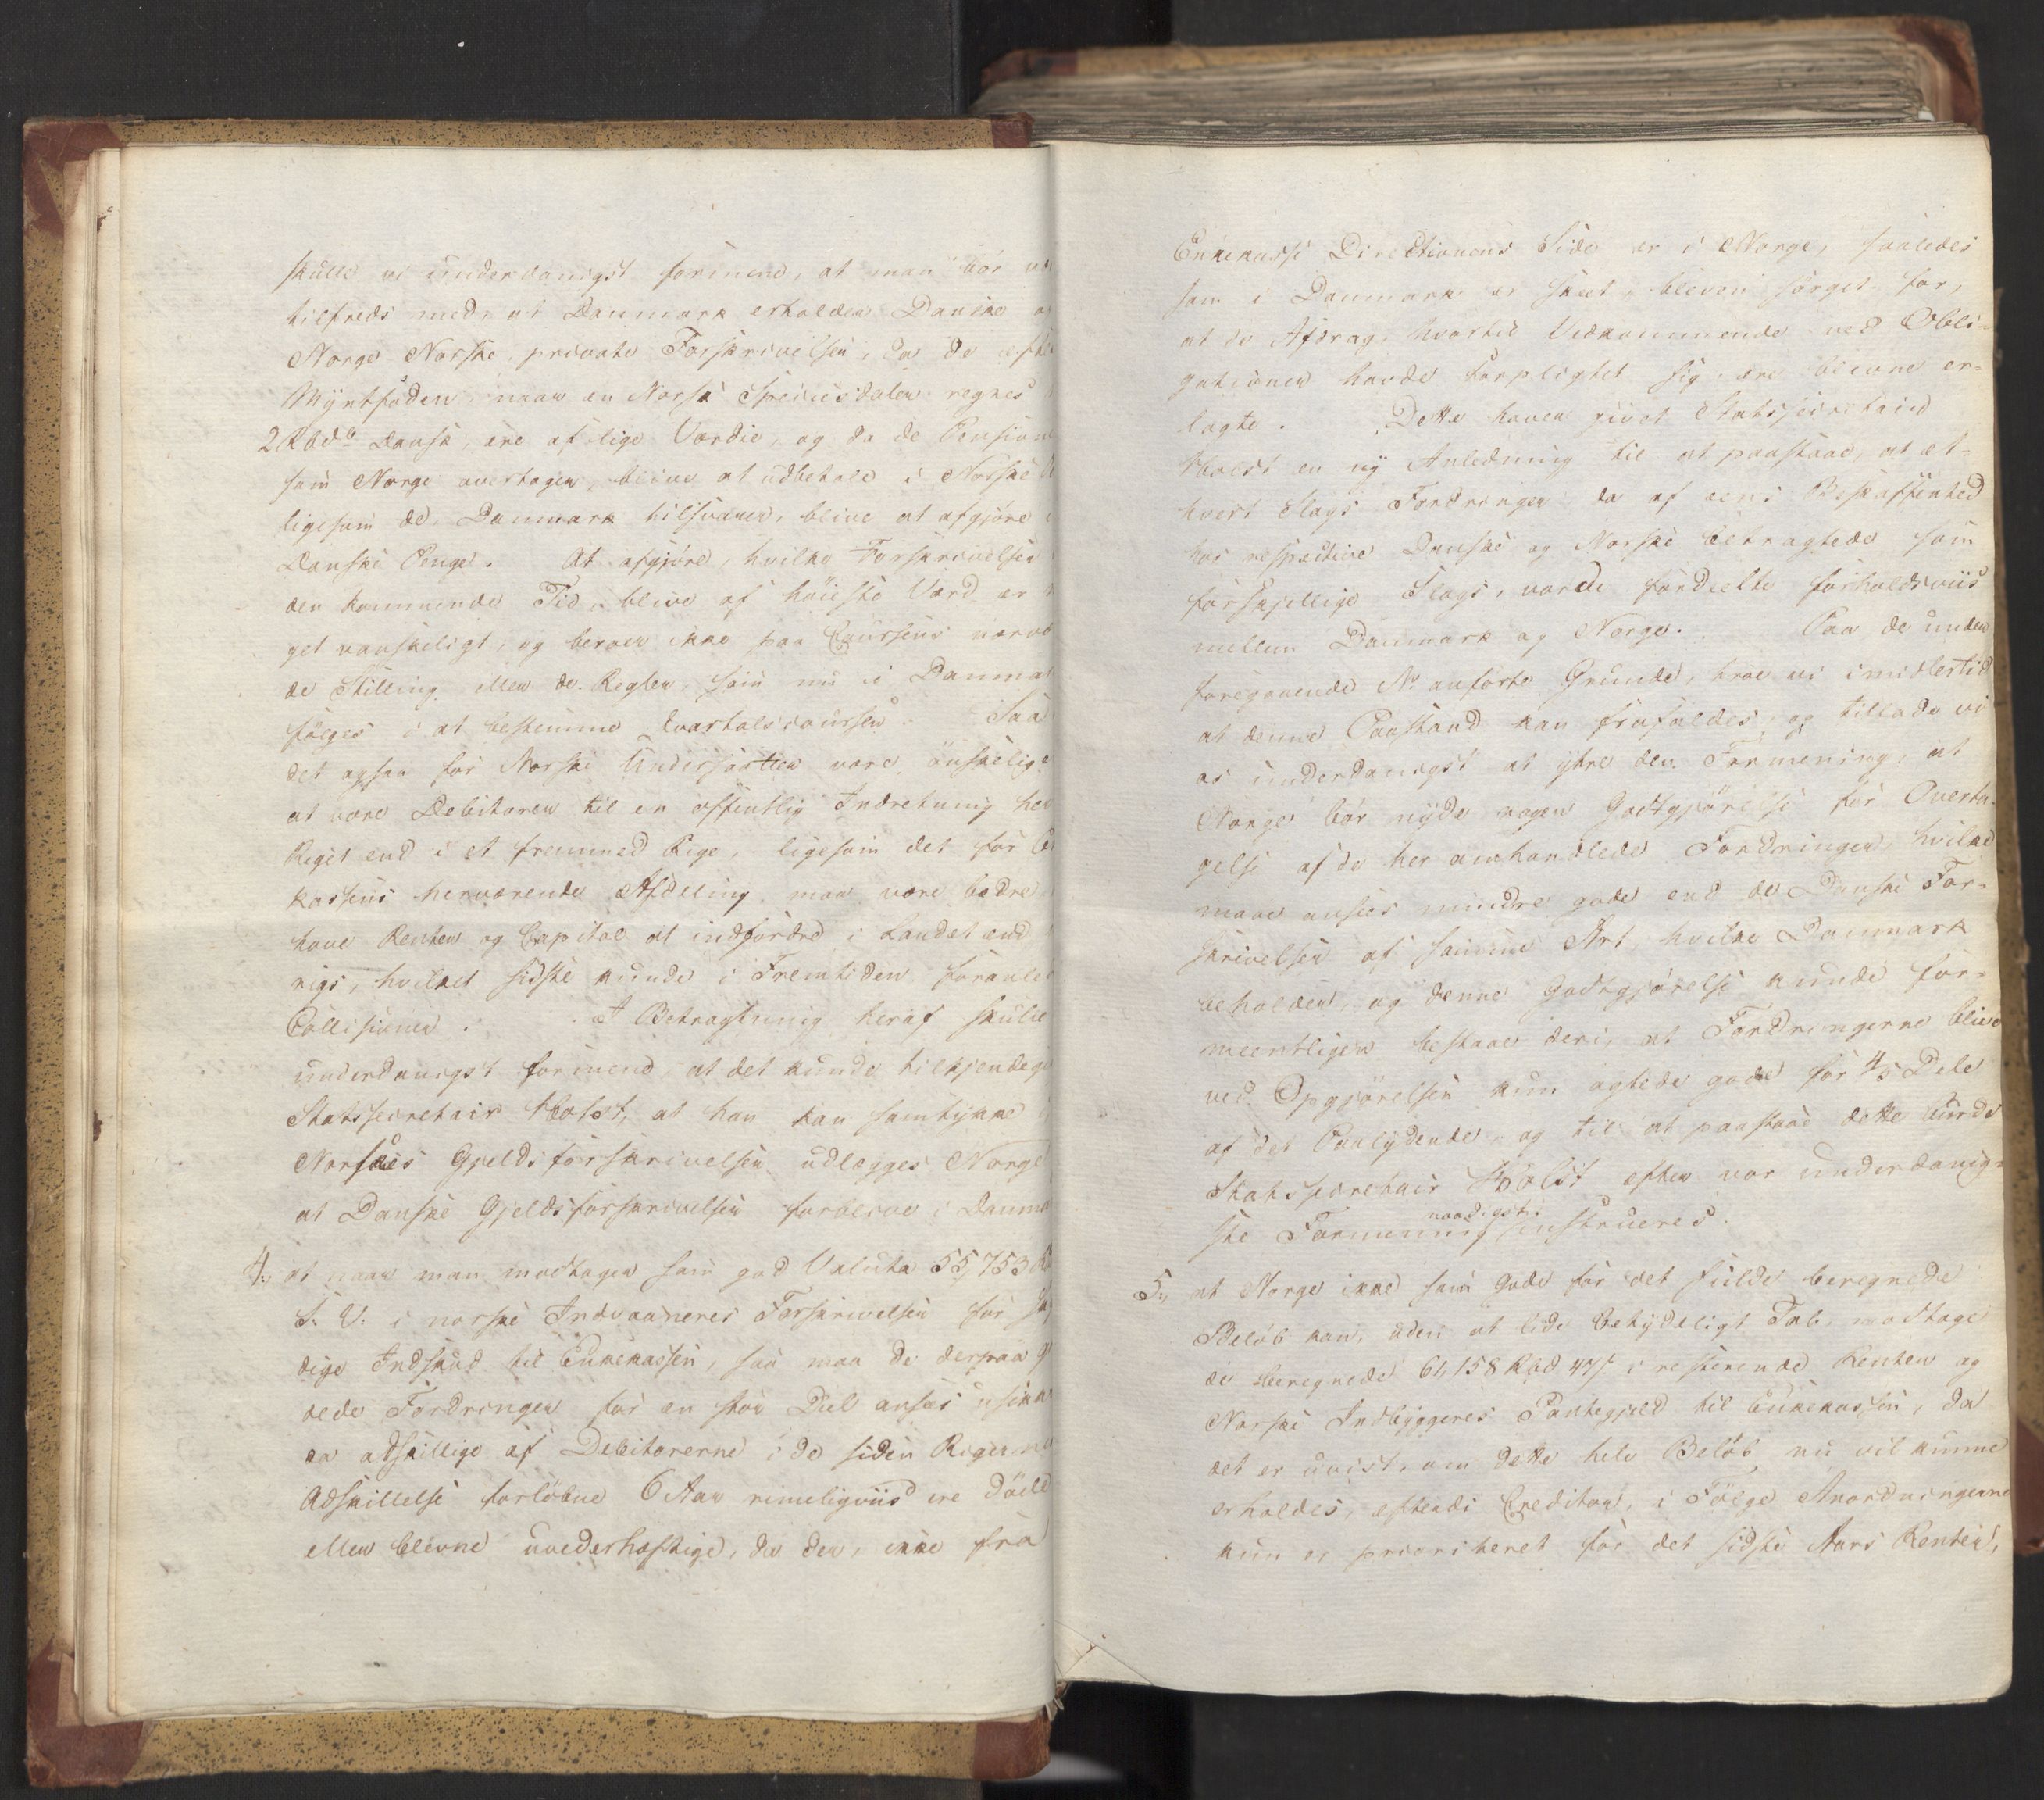 skulle vi underdanigst formene, at man bör
tilfreds med, at Danmark erholder Danske
Norge Norske private Forskrivelser, da de efter
Myntfoden, naar en Norsk Speciesdaler regnes
2 Rbd. Dansk, ere af lige Værdie, og da de Pension
som Norge overtager, blive at udbetale i Norske
ligesom de, Danmark tilsvarer, blive at afgjöre
Danske Penge. At afgjöre, hvilke Forskrivelser
den kommende Tid, blive af höieste Værd er
get vanskeligt, og beroer ikke paa Coursens nærvæ
de Stilling eller de Regler, som nu i Danmar
fölges i at bestemme Qvartalscoursen. Saa
det ogsaa for Norske Undersaatter være önskelige
at være Debitorer til en offentlig Indretning her
Riget end i et fremmed Rige, ligesom det for
kassens herværende Afdeling maa være bedre
have Renter og Capital at indfordre i Landet end
rigs, hvilket sidste kunde i Fremtiden foranle
Collisioner. I Betragtning heraf skulle
underdanigst formene, at det kunde tilkjendegi
Statssecretair Holst, at han kan samtykke
Norskes Gjeldsforskrivelser udlægges Norge
at Danske Gjeldsforskrivelser forblive i Danma
4, at naar man modtager som god Valuta 55,753
S. V. i norske Indvaaneres Forskrivelser for
dige Indskud til Enkekassen, saa maa de derpaa
dede Fordringer for en stor Deel ansees usikk
da adskillige af Debitorerne i de siden Rigerne
Adskillelse forlöbne 6 Aar rimeligviis ere döde
eller blevne uvederhæftige, da der, ikke fra
Enkekasse Directionens Side er i Norge, saaledes
som i Danmark er skeet, bleven sörget for,
at de Afdrag, hvortil Vedkommende ved Obli-
gationer havde forpligtet sig, ere blevne er-
lagte. Dette haver givet Statssecretaire
Holst en ny Anledning til at paastaae, at et-
hvert Slags Fordringer, da af deres Beskaffenhed
har respective Danske og Norske betragtede som
forskjellige Slags, vorde fordeelte forholdsviis
mellem Danmark og Norge. Paa de under
foregaaende No. anförte Grunde, troe vi imidlertid
at denne Paastand kan frafaldes, og tillade vi
os underdanigst at yttre den Formening, at
Norge bör nyde nogen Godtgjörelse for Overta-
gelse af de her omhandlede Fordringer, hvilke
maae ansees mindre gode end de Danske For-
skrivelser af samme Art, hvilke Danmark
beholder, og denne Godtgjörelse kunde for-
meentligen bestaae deri, at Fordringerne blive
ved Opgjörelsen kun agtede gode for 4/5 Dele
af det Paalydende, og til at paastaae dette burde
Statssecretair Holst efter vor underdanig-
ste Formening naadigst instrueres.
5, at Norge ikke som gode for det fulde beregnede
Belöb kan, uden at lide betydeligt Tab, modtage
de beregnede 61,158 Rbd 47 s i resterende Renter og
Norske Indbyggeres Pantegjeld til Enkekassen, da
det er uvist, om dette hele Belöb nu vil kunne
erholdes, efterdi Creditor, i Fölge Anordningerne
kun er prioriteret for det sidste Aars Renter,